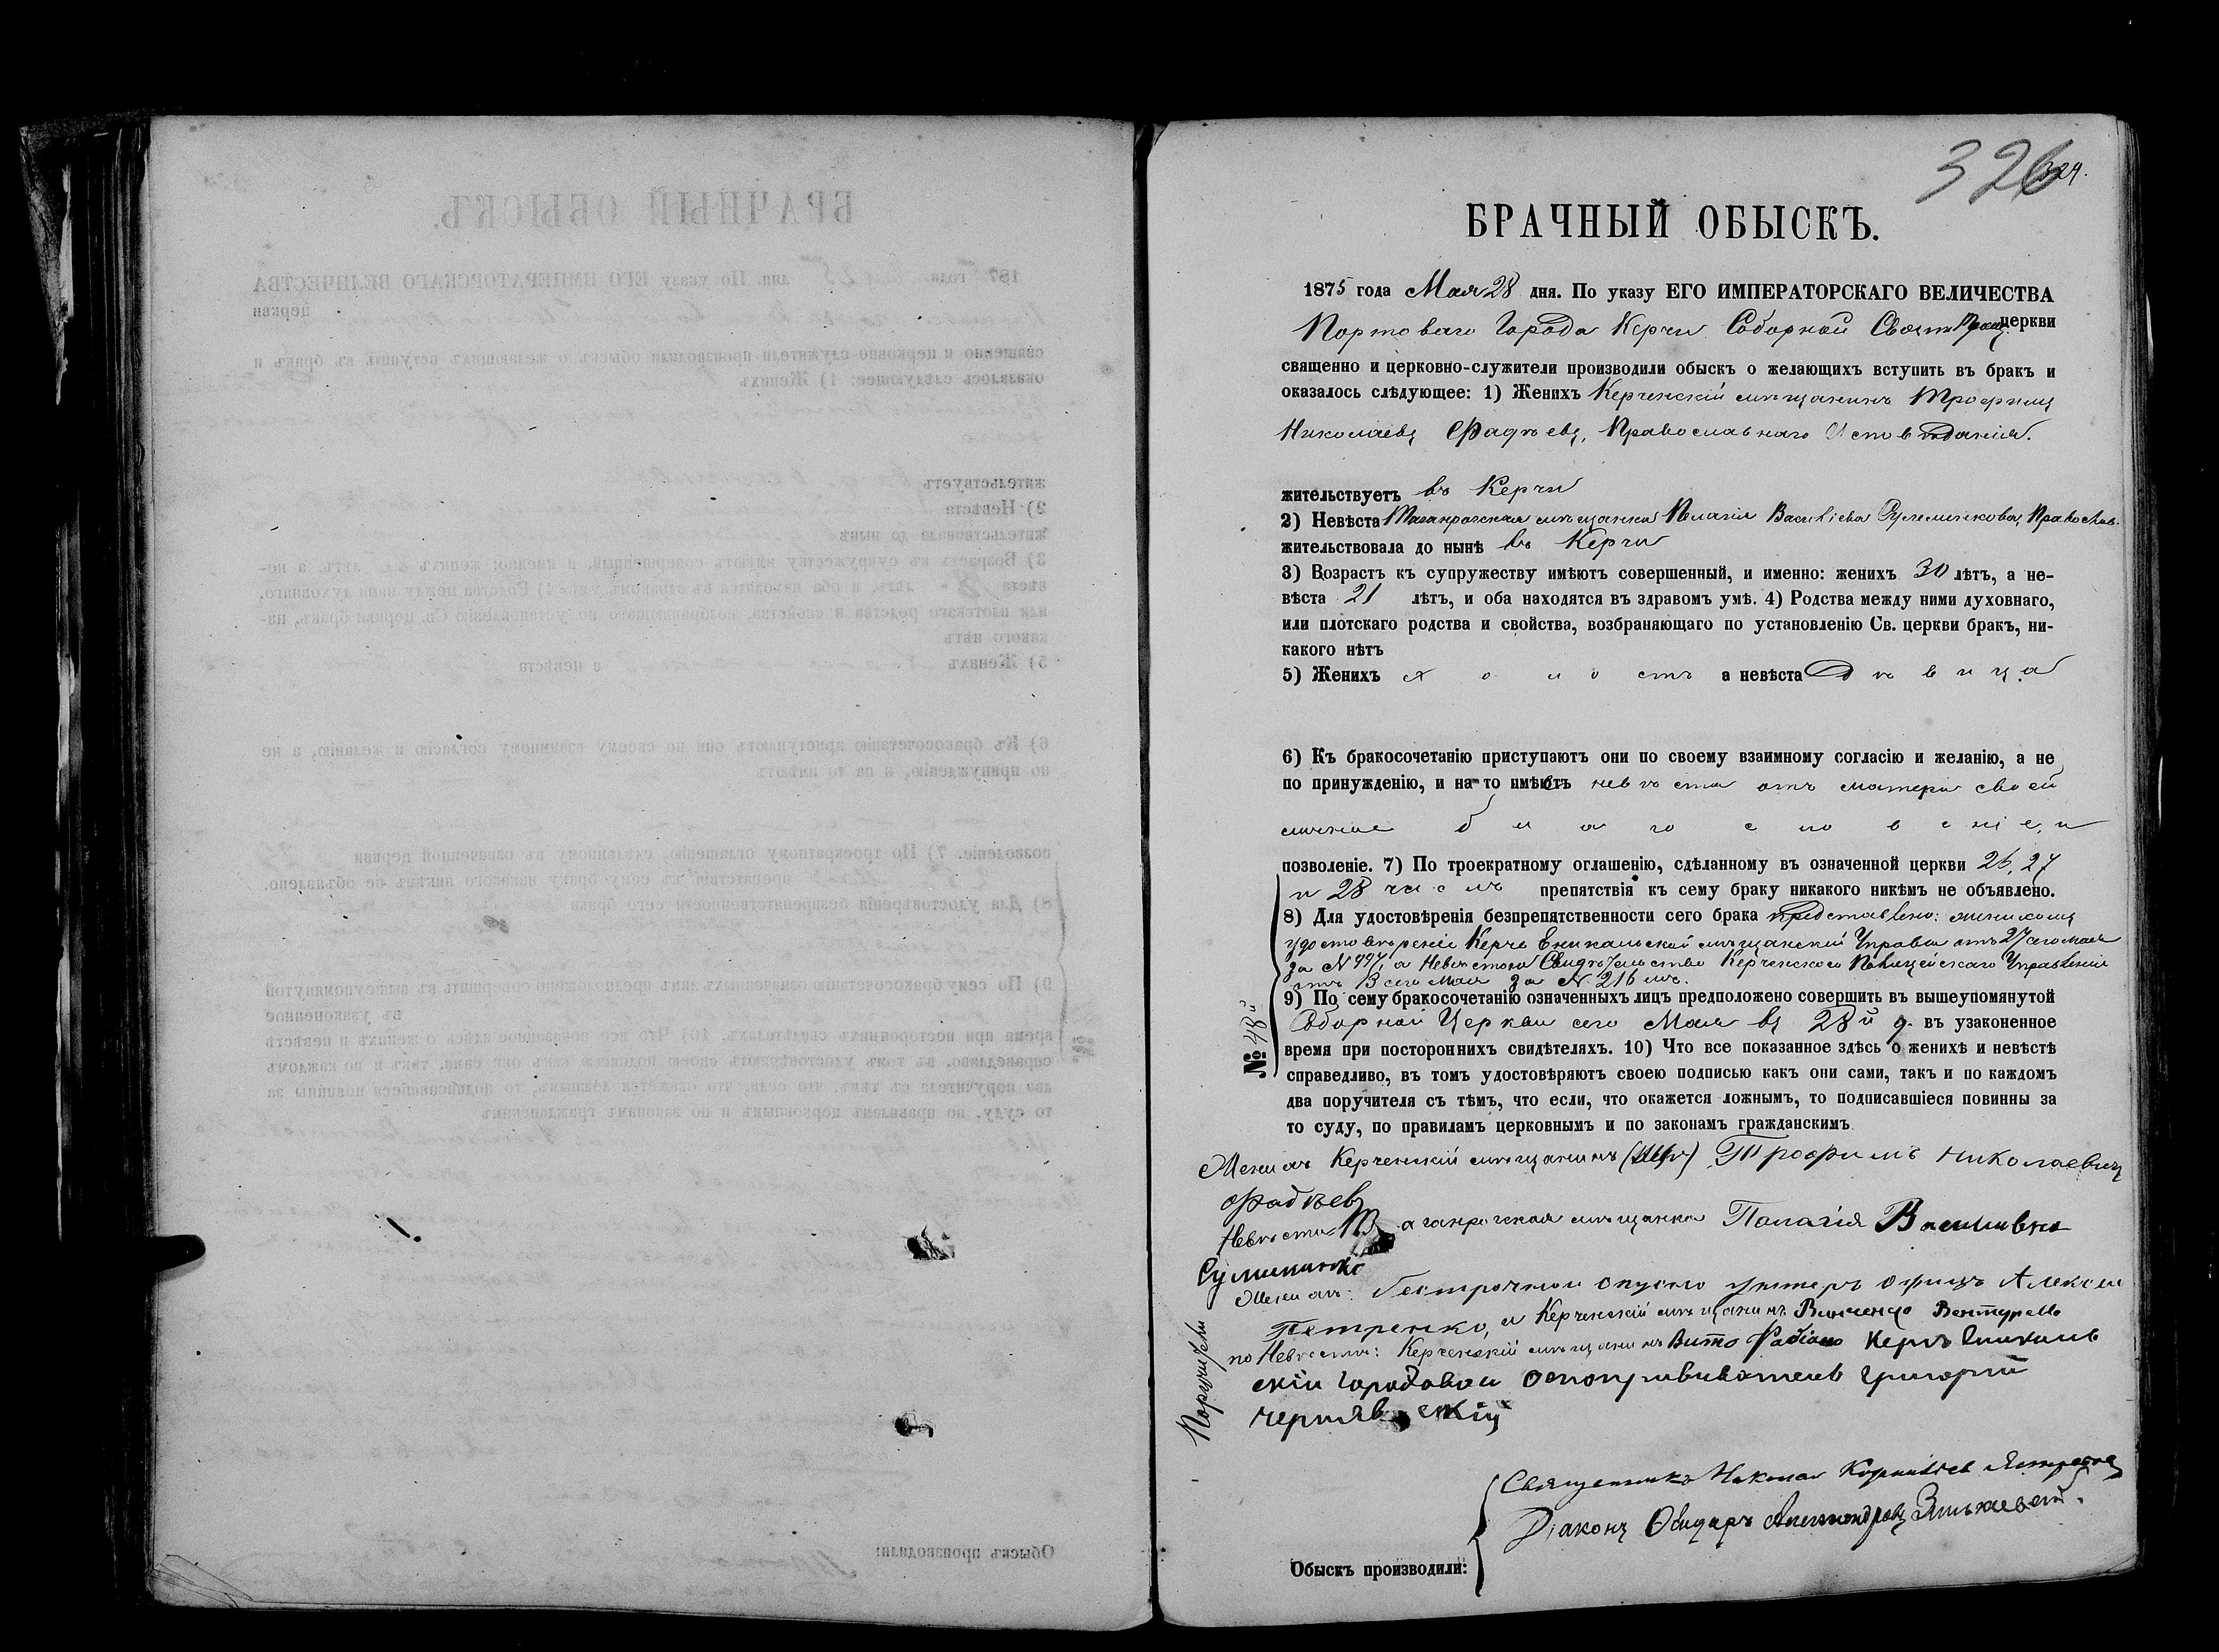 326
324.
БРАЧНЫЙ ОБЫСКЪ.
1875 года Мая 28 дня. По указу ЕГО ИМПЕРАТОРСКАГО ВЕЛИЧЕСТВА
Портоваго Города Керчи Соборной Свято Троиц. церкви
священно и церковно-служители производили обыскъ о желающихъ вступить въ бракъ и
оказалось слѣдующее: 1) Женихъ Керченскій мѣщанинъ Трофимъ
Николаевъ Фадѣевъ, Православнаго Исповѣданія.
жительствуетъ въ Керчи
2) Невѣста Таганрогская мѣщанка Пелагія Василіева Православ.
жительствовала до нынѣ въ Керчи
3) Возрастъ къ супружеству имѣютъ совершенный, и именно: женихъ 30 лѣтъ, а не-
вѣста 21 лѣтъ, и оба находятся въ здравомъ умѣ. 4) Родства между ними духовнаго,
или плотскаго родства и свойства, возбраняющаго по установленію Св. церкви бракъ, ни-
какого нѣтъ
5) Женихъ холостъ а невѣста Дѣвица
6) Къ бракосочетанію приступаютъ они по своему взаимному согласію и желанію, а не
по принужденію, и на то имѣютъ невѣста отъ матери своей
личное благословеніе, и
позволеніе. 7) По троекратному оглашенію, сдѣланному въ означенной церкви 26, 27
и 28 числъ препятствія къ сему браку никакого никѣмъ не объявлено.
8) Для удостовѣренія безпрепятственности сего брака представлено: женихомъ
удостовѣреніе Керчь Еникальской мѣщанской Управы отъ 27 сего мая
за N 997, а Невѣстою Свидѣтельство Керченскаго Полицейскаго Управленія
отъ сего Мая за N. 216
9) По сему бракосочетанію означенныхъ лицъ предположено совершить въ вышеупомянутой
Соборной Церкви сего Мая въ 28й д. въ узаконенное
время при постороннихъ свидѣтеляхъ. 10) Что все показанное здѣсь о женихѣ и невѣстѣ
справедливо, въ томъ удостовѣряютъ своею подписью какъ они сами, такъ и по каждомъ
два поручителя съ тѣмъ, что если, что окажется ложнымъ, то подписавшіеся повинны за
то суду, по правиламъ церковнымъ и по законамъ гражданскимъ
№ 48й
Женихъ Керченскій мѣщанинъ Трофимъ Николаевичъ
Фадѣевъ
Невѣста Таганрогская мѣщанка Палагія Васильевна
Поручители
Женихѣ: безсрочно отпускной унтеръ офицеръ Алексей
Петренко, и Керченскій мѣщанинъ Винченцо Вентурелло
по Невѣстѣ: Керченскій мѣщанинъ Вито Фабіано Керчь Еникаль
скій городовой оспопрививатель Григорій
Чернявскій
Священникъ Николай Корниліевъ
Діаконъ Александровъ
Обыскъ производили: